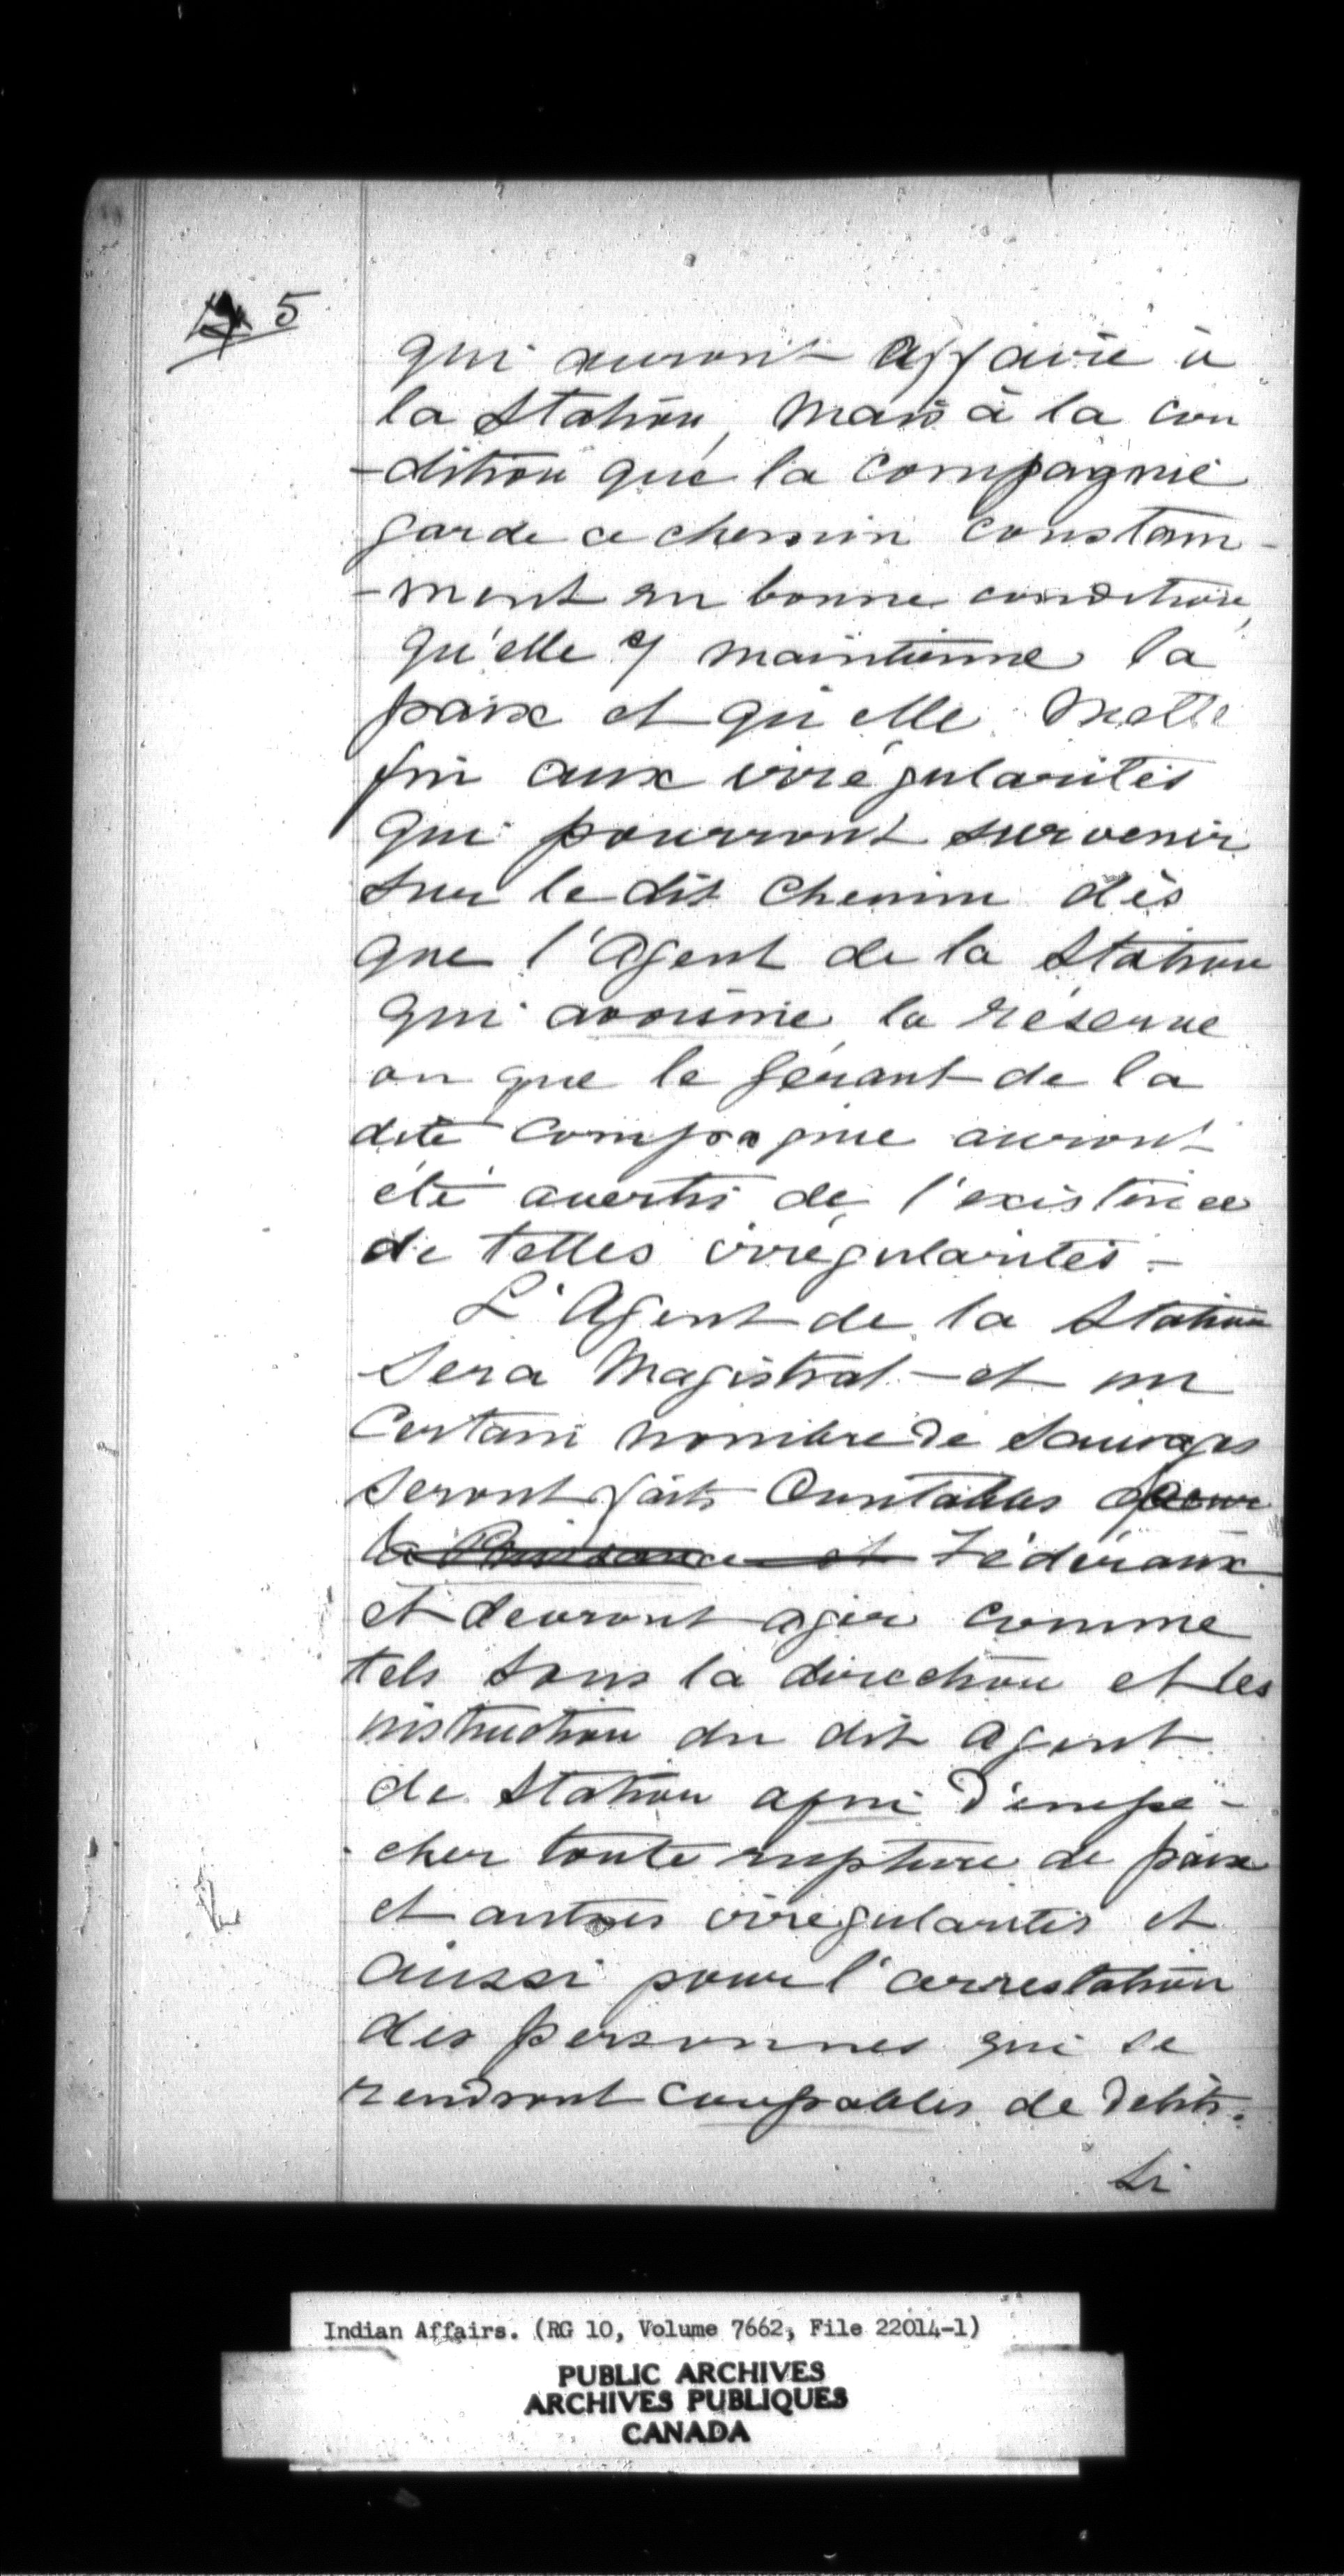 5
qui auront affaire à
la Station, Mais à la con
-dition que la Compagnie
garde ce chemin constam-
-ment en bonne condition,
qu'elle y maintienne la
paix et qu'elle Mette
fin aux irrégularités
qui pourront survenir
sur le dit Chemin dès
que l'Agent de la Station
qui avoisine la réserve
ou que le Gérant de la
dite Compagnie auront
été avertis de l'existence
de telles irrégularités -
L'Agent de la Station
Sera Magistrat - et un
Certain nombre de Sauvages
Seront faits Constables pour
la Puissance et Fédéraux
et devront agir comme
tels sous la direction et les
instruction du dit Agent
de Station afin d'empê-
cher toute rupture de paix
et autres irrégularités et
aussi pour l'arrestation
des personnes qui se
rendront coupables de délits.
Si
Indian Affairs. (RG 10, Volume 7662, File 22014-1)
PUBLIC ARCHIVES
ARCHIVES PUBLIQUES
CANADA